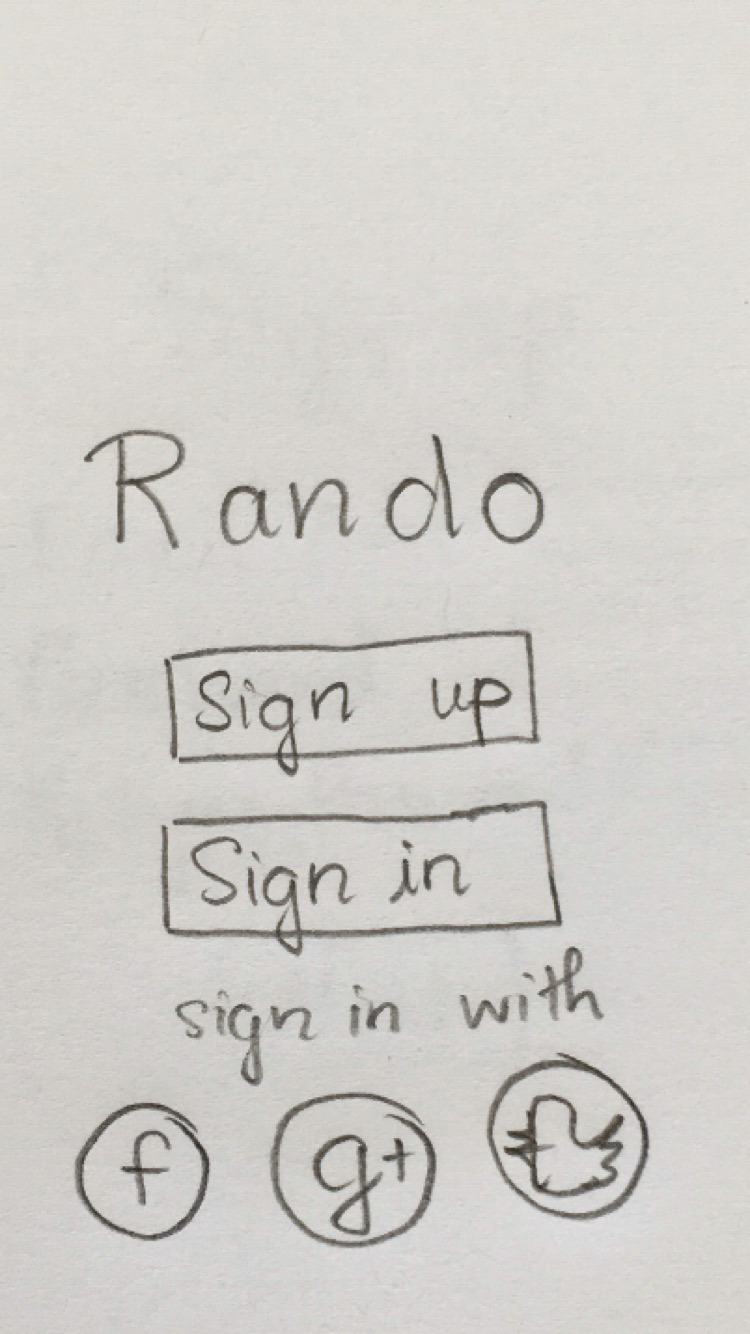 Rando
Sign up
Sign in
sign in with
f g+